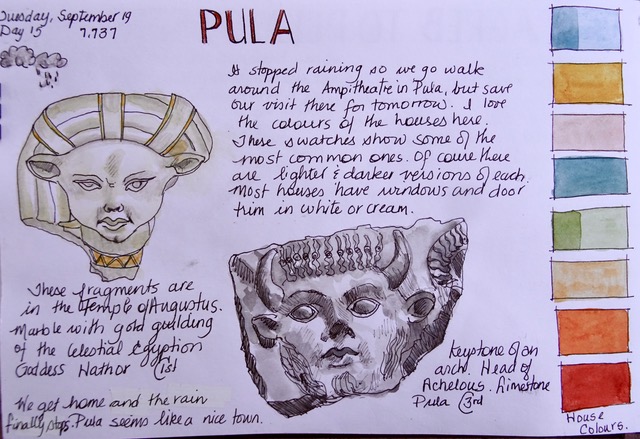 Tuesday, September 19
Day 15 7.737
PULA
It stopped raining so we go walk
around the Ampitheatre in Pula, but save
our visit there for tomorrow. I love
the colours of the houses here.
These swatches show some of the
most common ones. Of course there
are lighter & darker versions of each.
Most houses have windows and door
trim in white or cream.
These fragments are
in the Temple of Augustus.
Marble with gold guilding
of the Celestial Egyption
Goddess Hathor 1st
We get home and the rain
finally stops. Pula seems like a nice town.
Keystone of an
arch. Head of
Achelous. Limestone
Pula 3rd
House
Colours.